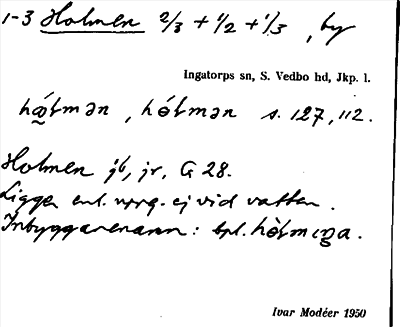 1-3 Holmen 2/3 + 1/2 + 1/3, by
Ingatorps sn, S. Vedbo hd, Jkp. l.
hólmən s. 127, 112.
Holmen jb, jr, G 28.
Ligger enl. uppg. ej vid vatten.
Inbyggarenamn: bpl.
Ivar Modéer 1950